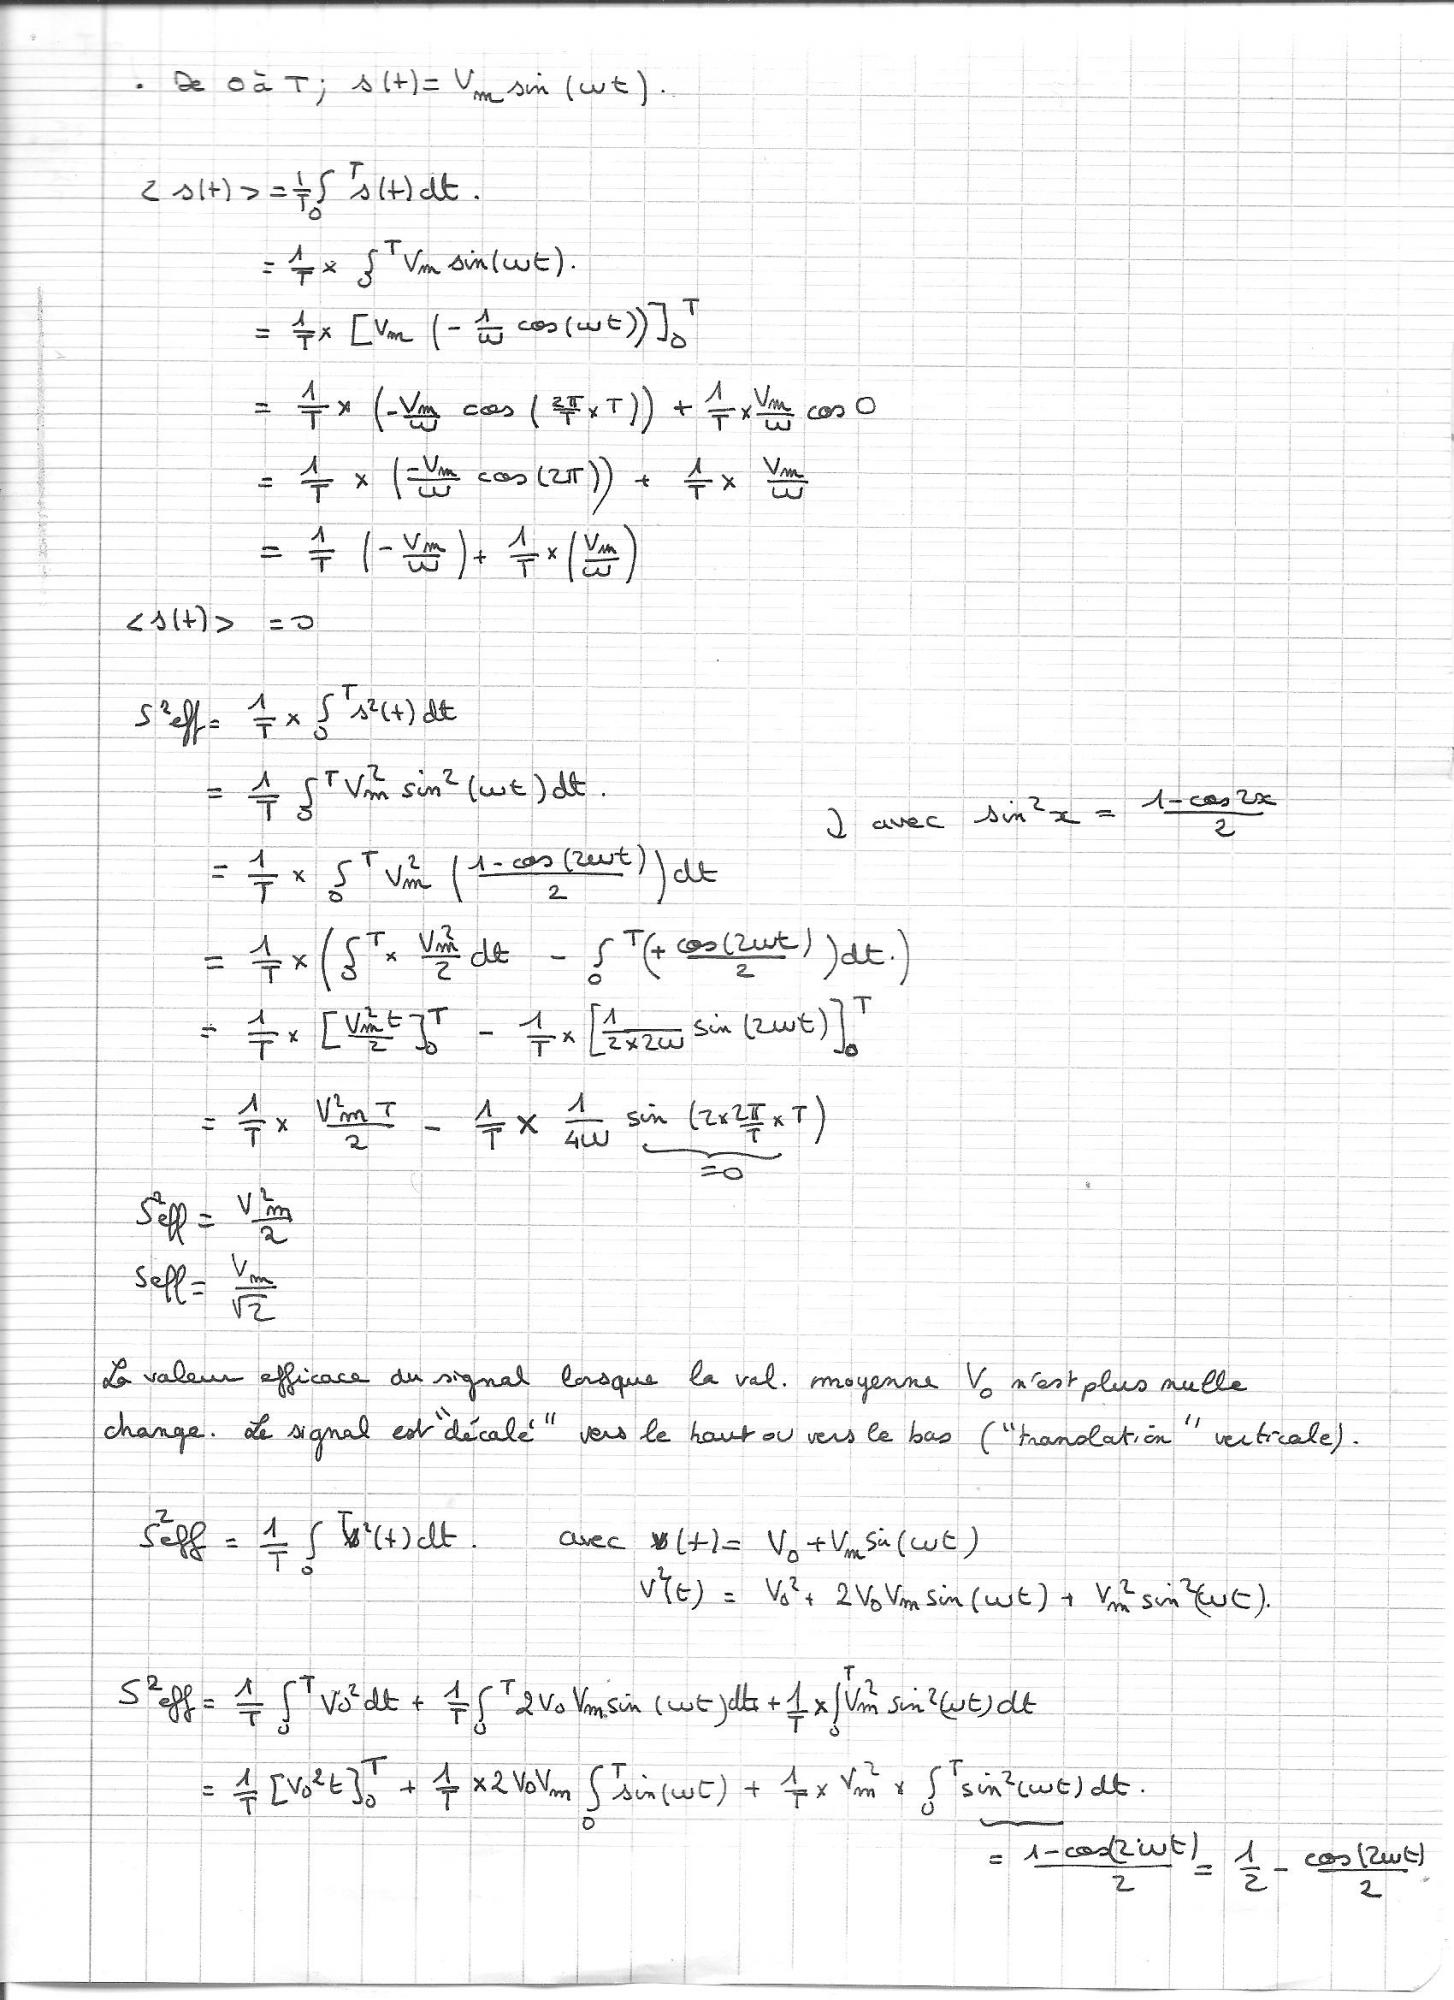 . De 0 à T ; s(t) = Vm sin (ωt).
< s(t) > = 1/T ∫₀ᵀ s(t) dt.
= 1/T × ∫₀ᵀ Vm sin(ωt).
= 1/T × [Vm (- 1/ω cos(ωt))]₀ᵀ
= 1/T × (-Vm/ω cos (2π/T × T)) + 1/T × Vm/ω cos 0
= 1/T × (-Vm/ω cos (2π)) + 1/T × Vm/ω
= 1/T (- Vm/ω) + 1/T × (Vm/ω)
< s(t) > = 0
S²eff = 1/T × ∫₀ᵀ s²(t) dt
= 1/T ∫₀ᵀ Vm² sin² (ωt) dt.
↓ avec sin²x = (1-cos2x)/2
= 1/T × ∫₀ᵀ Vm² ((1-cos(2ωt))/2) dt
= 1/T × (∫₀ᵀ × Vm²/2 dt - ∫₀ᵀ (+ cos(2ωt)/2) dt.)
= 1/T × [Vm² t/2]₀ᵀ - 1/T × [1/(2×2ω) sin (2ωt)]₀ᵀ
= 1/T × V²m T/2 - 1/T × 1/4ω sin (2×2π/T × T)
=0
S²eff = V²m/2
Seff = Vm/√2
La valeur efficace du signal lorsque la val. moyenne V₀ n'est plus nulle
change. Le signal est "décalé" vers le haut ou vers le bas ("translation" verticale).
S²eff = 1/T ∫₀ᵀ v²(t) dt. avec v(t) = V₀ + Vm sin(ωt)
V²(t) = V₀² + 2V₀Vm sin(ωt) + Vm² sin²(ωt).
S²eff = 1/T ∫₀ᵀ V₀² dt + 1/T ∫₀ᵀ 2V₀ Vm sin (ωt) dt + 1/T × ∫₀ᵀ Vm² sin²(ωt) dt
= 1/T [V₀² t]₀ᵀ + 1/T × 2V₀Vm ∫₀ᵀ sin(ωt) + 1/T × Vm² × ∫₀ᵀ sin²(ωt) dt.
= (1-cos(2ωt))/2 = 1/2 - cos(2ωt)/2